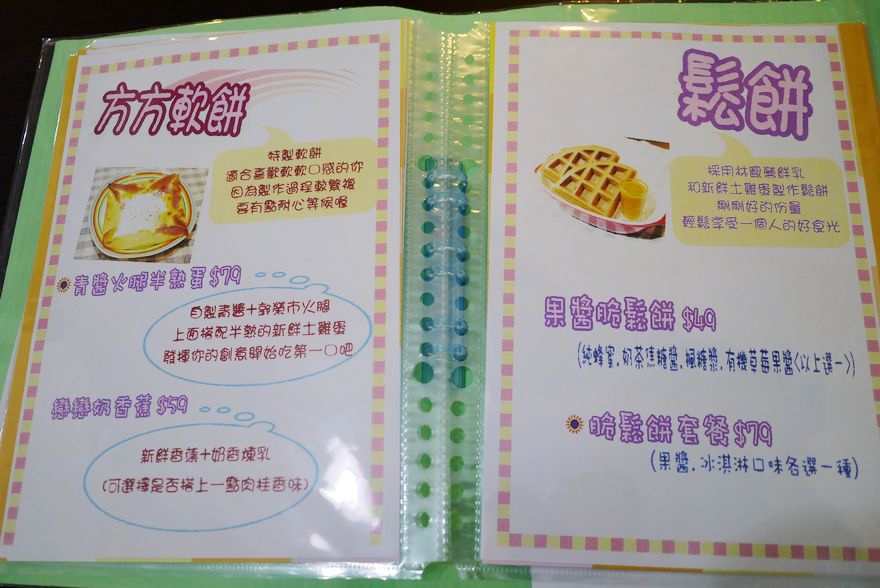 方方軟餅
特製軟餅
適合喜歡軟軟口感的你
因為製作過程較繁複
要有點耐心等候喔
青醬火腿半熟蛋$79
自製青醬+穀榮市火腿
上面搭配半熟的新鮮土雞蛋
發揮你的創意開始吃第一口吧
戀戀奶香蕉$59
新鮮香蕉+奶香煉乳
(可選擇是否搭上一點肉桂香味)
鬆餅
採用林鳳營鮮乳
和新鮮土雞蛋製作鬆餅
剛剛好的份量
輕鬆享受一個人的好食光
果醬脆鬆餅 $49
(純蜂蜜.奶茶焦糖醬.楓糖漿.有機草莓果醬<以上選一>)
脆鬆餅套餐 $79
(果醬.冰淇淋口味各選一種)